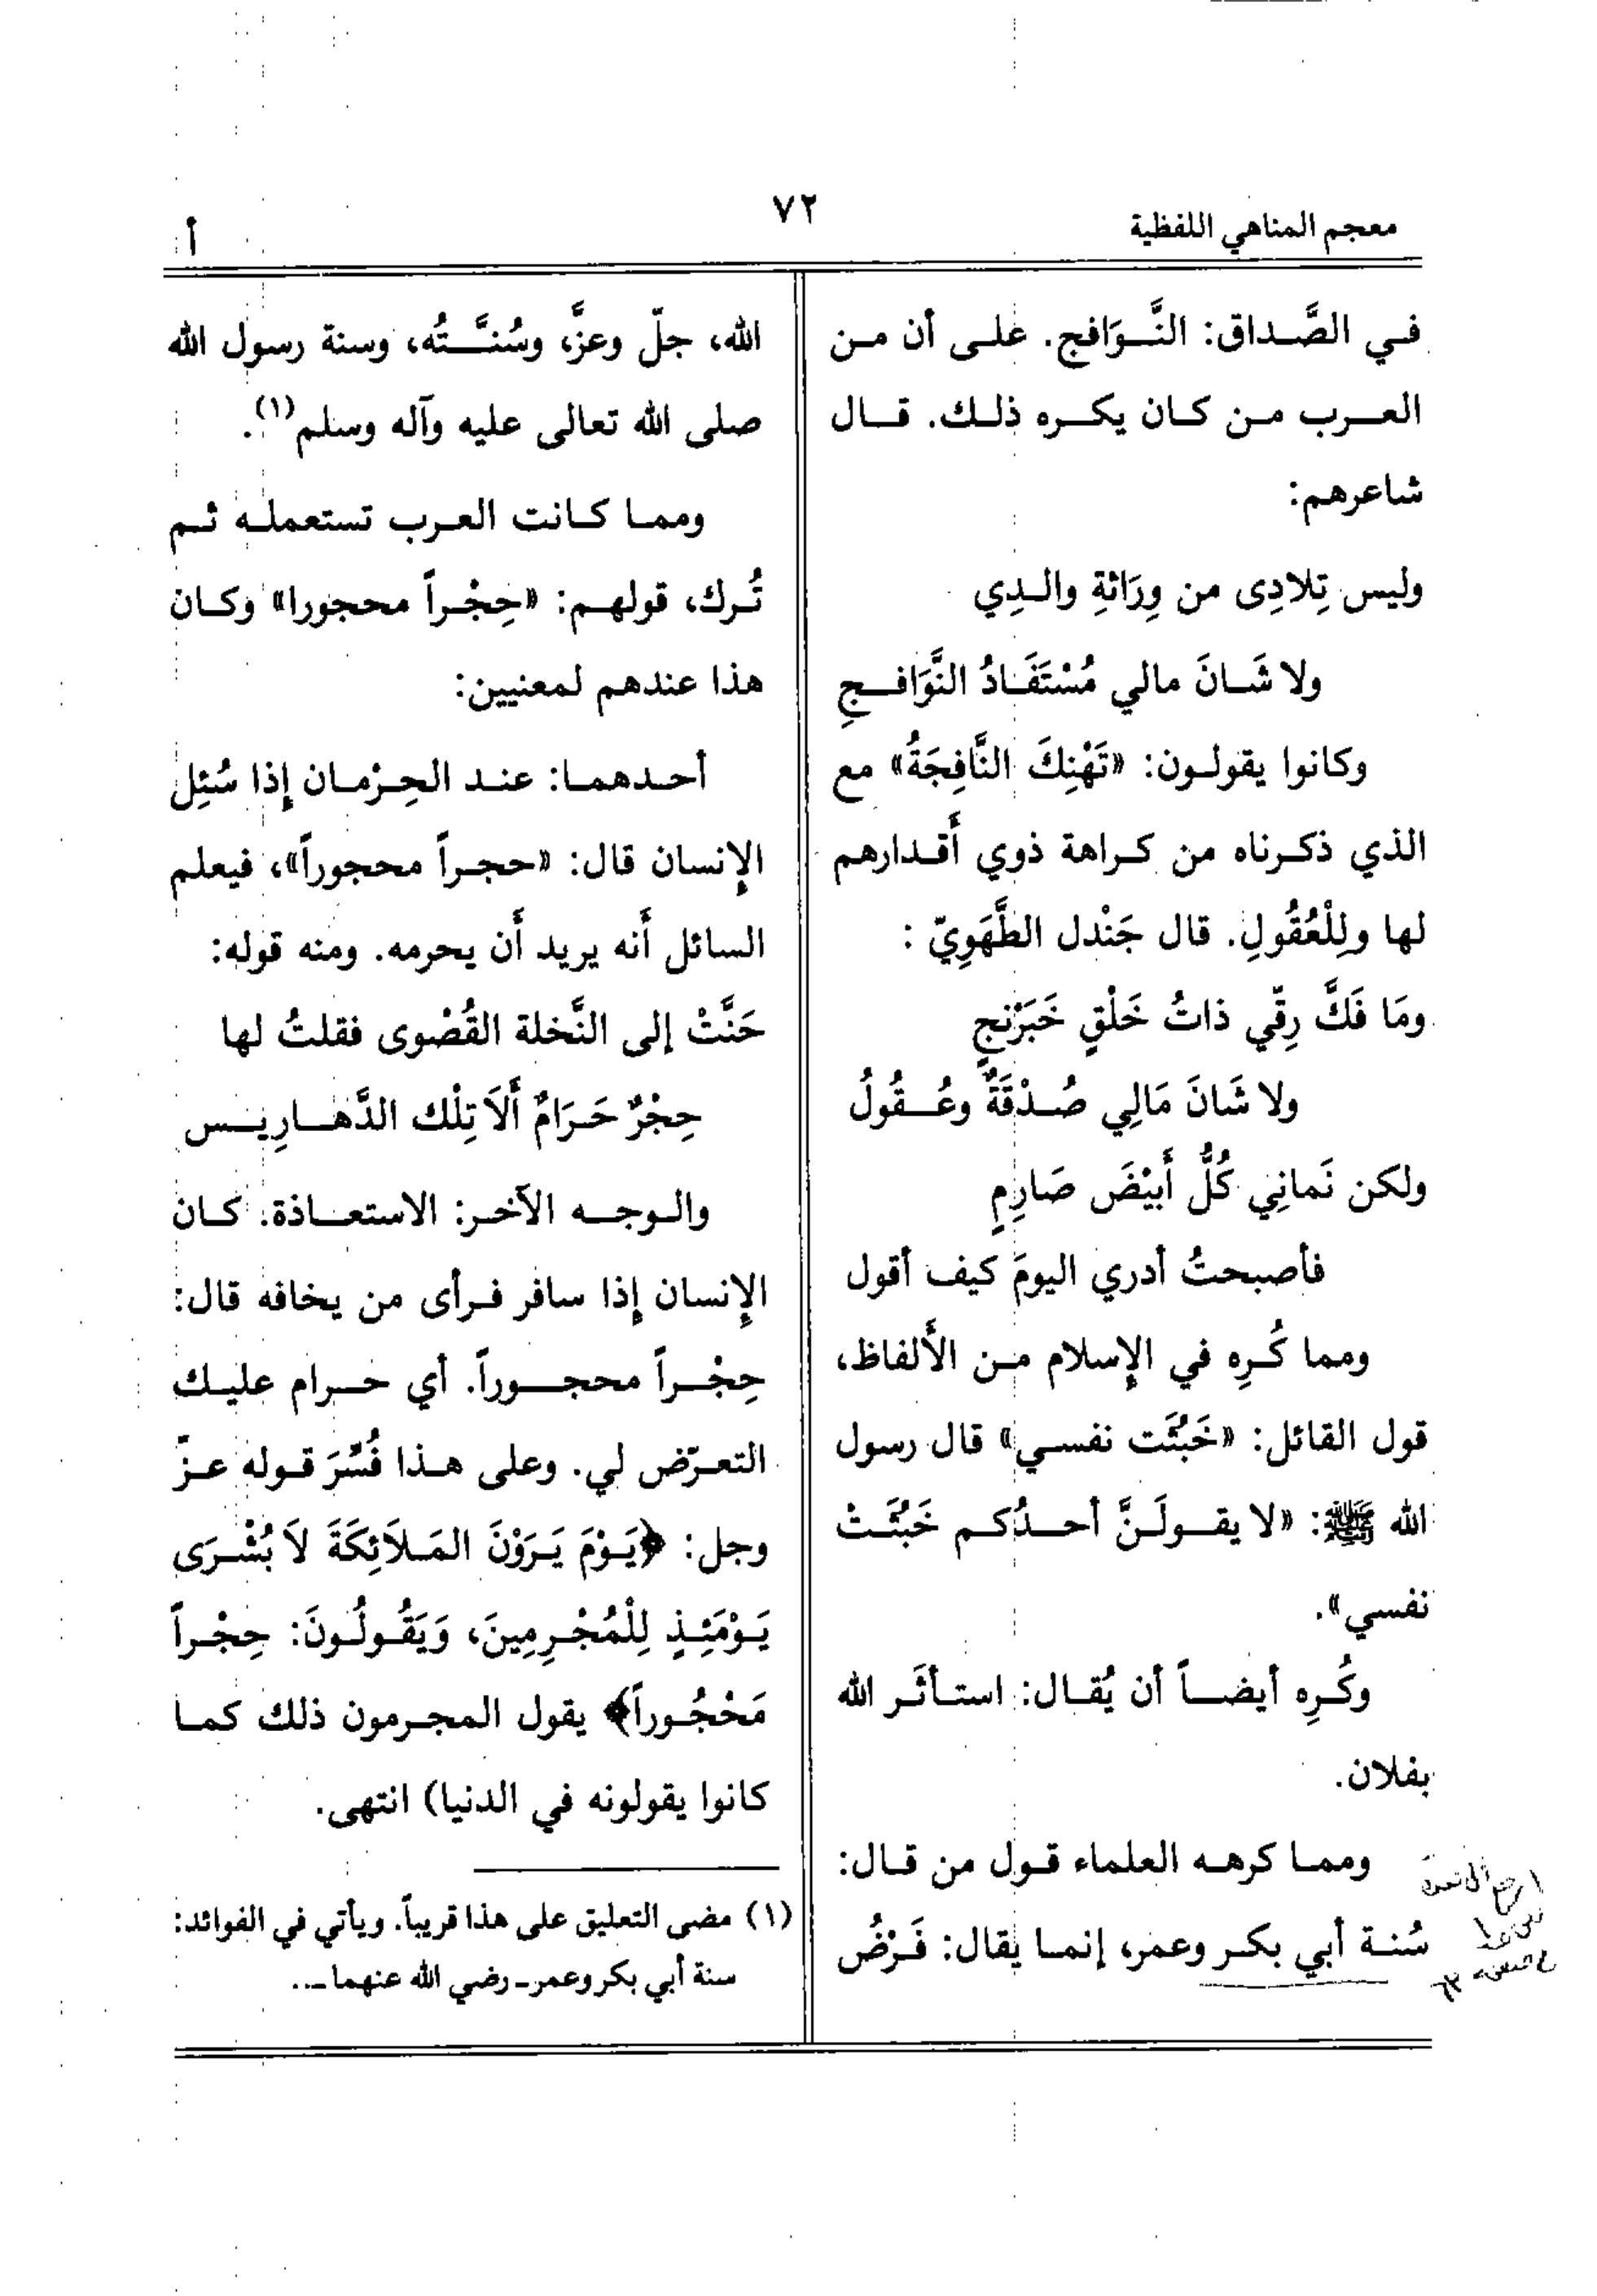 معجم المناهي اللفظية
٧٢
أ
في الصَّداق: النَّوَافج. على أن من
العرب من كان يكره ذلك. قال
شاعرهم:
وليس تِلادِى من وِرَاثةِ والدِي
ولا شَانَ مالي مُسْتَفَادُ النَّوَافجِ
وكانوا يقولون: «تَهْنِكَ النَّافِجَةُ» مع
الذي ذكرناه من كراهة ذوي أَقدارهم
لها ولِلْعُقُولِ. قال جَنْدل الطَّهَوِيّ :
ومَا فَكَّ رِقّي ذاتُ خَلْقٍ خَبَرْنجٍ
ولا شَانَ مَالِي صُدْقَةٌ وعُقُولُ
ولكن نَمانِي كُلُّ أَبيْضَ صَارِمٍ
فأصبحتُ أدري اليومَ كيف أقول
ومما كُرِه في الإسلام من الأَلفاظ،
قول القائل: «خَبُثَت نفسي» قال رسول
الله ﷺ: «لا يقولَنَّ أحدُكم خَبُثَتْ
نفسي».
وكُرِه أيضاً أن يُقال: استأثَر الله
بفلان.
ومما كرهه العلماء قول من قال:
سُنة أبي بكر وعمر، إنما يقال: فَرْضُ
الله، جلّ وعزَّ، وسُنَّتُه، وسنة رسول الله
صلى الله تعالى عليه وآله وسلم(١).
ومما كانت العرب تستعمله ثم
تُرك، قولهم: «حِجْراً محجورا» وكان
هذا عندهم لمعنيين:
أحدهما: عند الحِرْمان إذا سُئِل
الإنسان قال: «حجراً محجوراً»، فيعلم
السائل أَنه يريد أَن يحرمه. ومنه قوله:
حَنَّتْ إلى النَّخلة القُصْوى فقلتُ لها
حِجْرٌ حَرَامٌ أَلاَ تِلْك الدَّهارِيس
والوجه الآخر: الاستعاذة. كان
الإنسان إذا سافر فرأى من يخافه قال:
حِجْراً محجوراً. أي حرام عليك
التعرّض لي. وعلى هذا فُسِّرَ قوله عزّ
وجل: ﴿يَوْمَ يَرَوْنَ المَلاَئِكَةَ لاَ بُشْرَى
يَوْمَئِذٍ لِلْمُجْرِمِينَ، وَيَقُولُونَ: حِجْراً
مَحْجُوراً﴾ يقول المجرمون ذلك كما
كانوا يقولونه في الدنيا) انتهى.
(١) مضى التعليق على هذا قريباً. ويأتي في الفوائد:
سنة أبي بكر وعمر ـ رضي الله عنهما ـ..